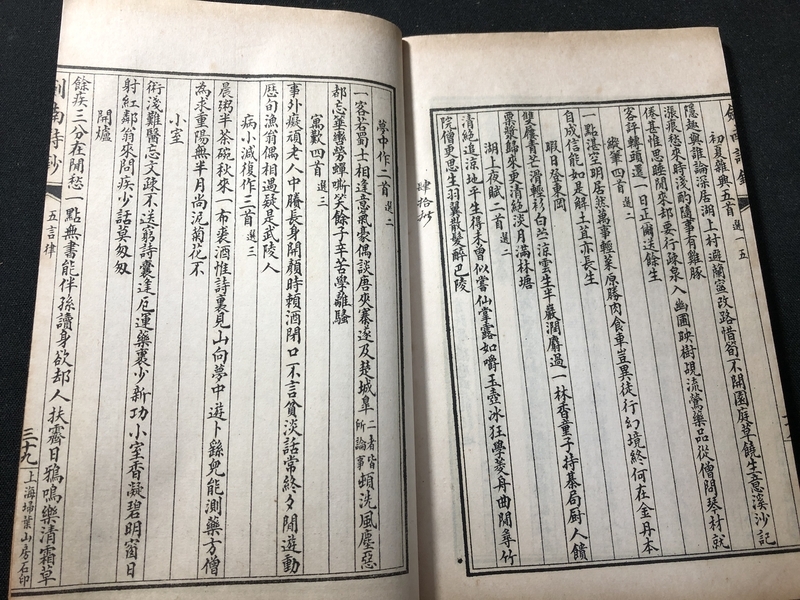 初夏雜興五首 選一五
隱趣與誰論深居湖上村避蘭寧改路惜筍不開園庭草饒生意溪沙記
漲痕愁來時淺酌隨事有雞豚
倦甚惟思睡閒來却要行疎泉入幽圃映樹覘流鶯藥品從僧問琴材就
客評轉頭還一日正爾送餘生
縱筆四首 選二
一點湛空明居然萬事輕菜原勝肉食車豈異徒行幻境終何在金丹本
自成信能如是解土苴亦長生
暇日登東岡
雙屨青芒滑輕衫白苎涼雲生半巖潤麝過一林香童子持棊局厨人饋
粟漿歸來更清絕淡月滿林塘
湖上夜賦二首 選二
清絕追涼地平生得未曾似嘗仙掌露如嚼玉壺冰狂學菱舟曲閒尋竹
院僧更思生羽翼散髮醉巴陵
肆拾
夢中作二首 選二
一客若蜀士相逢意氣豪偶談唐夾寨遂及楚城皋 二者皆所論事 頓洗風塵惡
都忘蓽轡勞蟬嘶笑餘子至苦學離騷
寓歎四首 選三
事外癡頑老人中賸長身開顏時賴酒閉口不言貧淡話常終夕閒遊動
歷旬漁翁偶相遇疑是武陵人
病小減復作三首 選三
晨粥半茶碗秋來一布裘酒惟詩裏見山向夢中遊卜繇兒能測藥方僧
為求重陽無半月尚泥菊花不
小室
術淺難醫忘文疎不送窮詩囊逢厄運藥裹少新功小室香凝碧明窗日
射紅鄰翁來問疾少話莫匆匆
開爐
餘疾三分在閒愁一點無書能伴孫讀身欲却人扶霽日鵶鳴樂清霜草
劍南詩鈔
五言律
三十九
上海埽葉山房石印